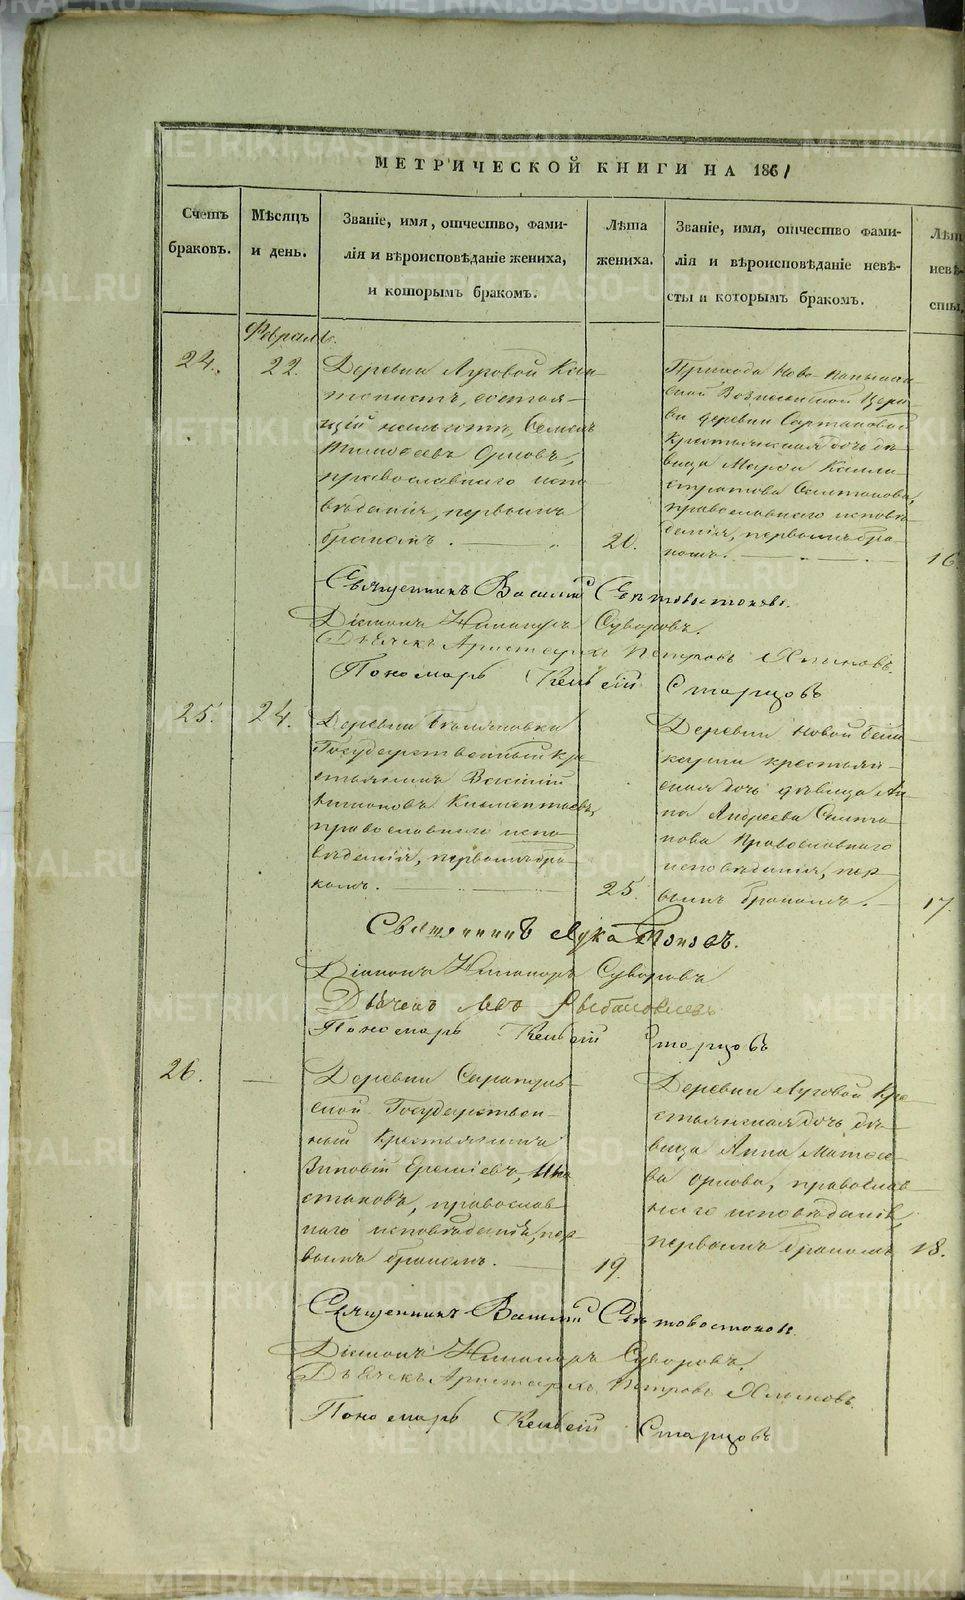 МЕТРИЧЕСКОЙ КНИГИ НА 1861
Счетъ браковъ.
Мѣсяцъ и день.
Званіе, имя, отчество, фами-
лія и вѣроисповѣданіе жениха,
и которымъ бракомъ.
Лѣта жениха.
Званіе, имя, отчество фами-
лія и вѣроисповѣданіе невѣ-
сты и которымъ бракомъ.
Лѣт
невѣ-
сты.
Февраль.
24.
22.
Деревни Луговой Кан-
тонистъ, состоя-
щій
Семенъ
Тимофеевъ Орловъ,
православнаго испо
вѣданія, первымъ
бракомъ.
20.
Прихода Ново-
ской Вознесенской Церк-
ви деревни
крестьянская дочь дѣ-
вица Марѳа Калли-
стратова
православнаго исповѣ-
данія, первымъ бра-
комъ.
16.
Священникъ Василій Свѣтовостоковъ.
Діаконъ Никаноръ Суворовъ.
Дьячекъ Аристархъ Петровъ Хлыновъ.
Пономарь Старцовъ
25.
24.
Деревни
Государственный кре-
стьянинъ Василій
Климентьевъ,
православнаго испо-
вѣданія, первымъ бра-
комъ.
25.
Деревни Новой
крестьян-
ская дочь дѣвица Ан-
на Андреева
нова Православнаго
исповѣданія, пер-
вымъ бракомъ.
17.
Священникъ Лука Поповъ.
Діаконъ Никаноръ Суворовъ
Дьячекъ Левъ
Пономарь Старцовъ
26.
—
Деревни
ской Государствен-
ный крестьянинъ
Зиновій
православ-
наго исповѣданія, пер-
вымъ бракомъ.
19.
Деревни Луговой Кре-
стьянская дочь дѣ-
вица Анна Матѳее-
ва Орлова, православ-
наго исповѣданія,
первымъ бракомъ
18.
Священникъ Василій Свѣтовостоковъ.
Діаконъ Никаноръ Суворовъ.
Дьячекъ Аристархъ Петровъ Хлыновъ.
Пономарь Старцовъ
METRIKI.GASO-URAL.RU